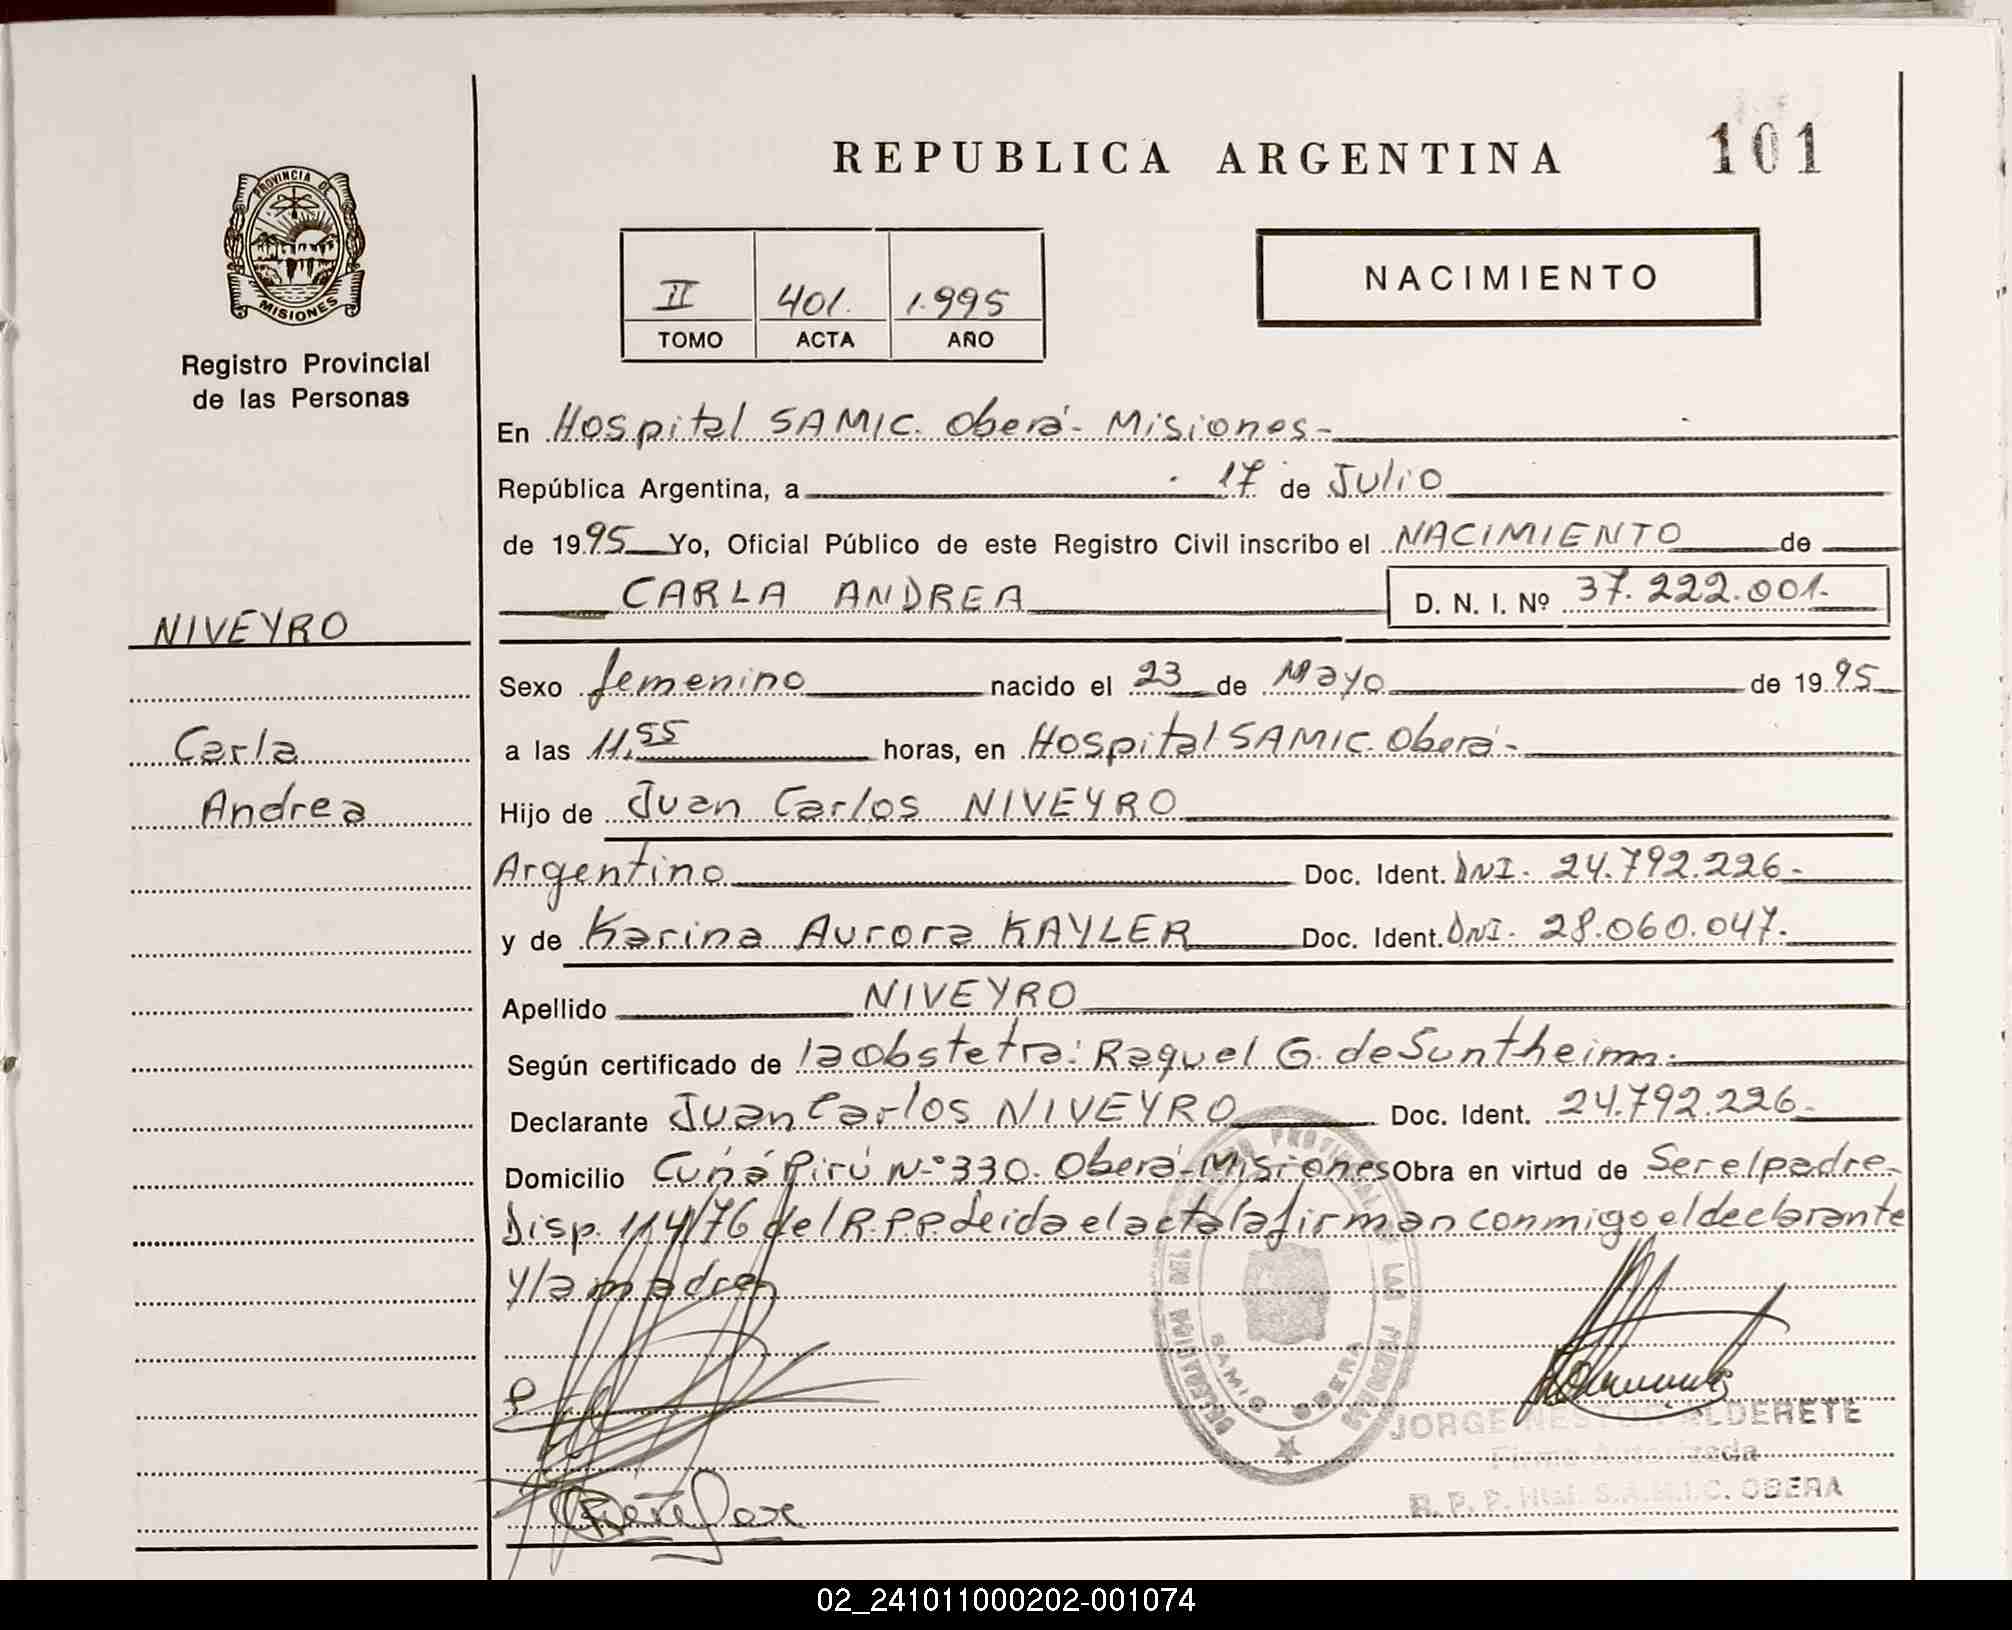 REPUBLICA ARGENTINA
101
PROVINCIA DE
MISIONES
Registro Provincial
de las Personas
II 401. 1.995
TOMO ACTA AÑO
NACIMIENTO
En Hospital SAMIC. Oberá - Misiones-
República Argentina, a 17 de Julio
de 1995 Yo, Oficial Público de este Registro Civil inscribo el NACIMIENTO de
CARLA ANDREA D. N. I. Nº 37.222.001.-
NIVEYRO
Carla
Andrea
Sexo femenino nacido el 23 de Mayo de 1995
a las 11,55 horas, en Hospital SAMIC. Oberá-
Hijo de Juan Carlos NIVEYRO
Argentino Doc. Ident. DNI. 24.792.226.-
y de Karina Aurora KAYLER Doc. Ident. DNI. 28.060.047.-
Apellido NIVEYRO
Según certificado de la Obstetra: Raquel G. de Suntheim.
Declarante Juan Carlos NIVEYRO Doc. Ident. 24.792.226.-
Domicilio Cuñá Pirú N-° 330. Oberá-Misiones Obra en virtud de Ser el padre.
Disp. 114/76 del R.P.P. Leida el acta la firman conmigo el declarante
y la madre
SAMIC OBERA
JORGE NESTOR ALDERETE
Firma Autorizada
R. P. P. Htal. S.A.M.I.C. OBERA
02_241011000202-001074